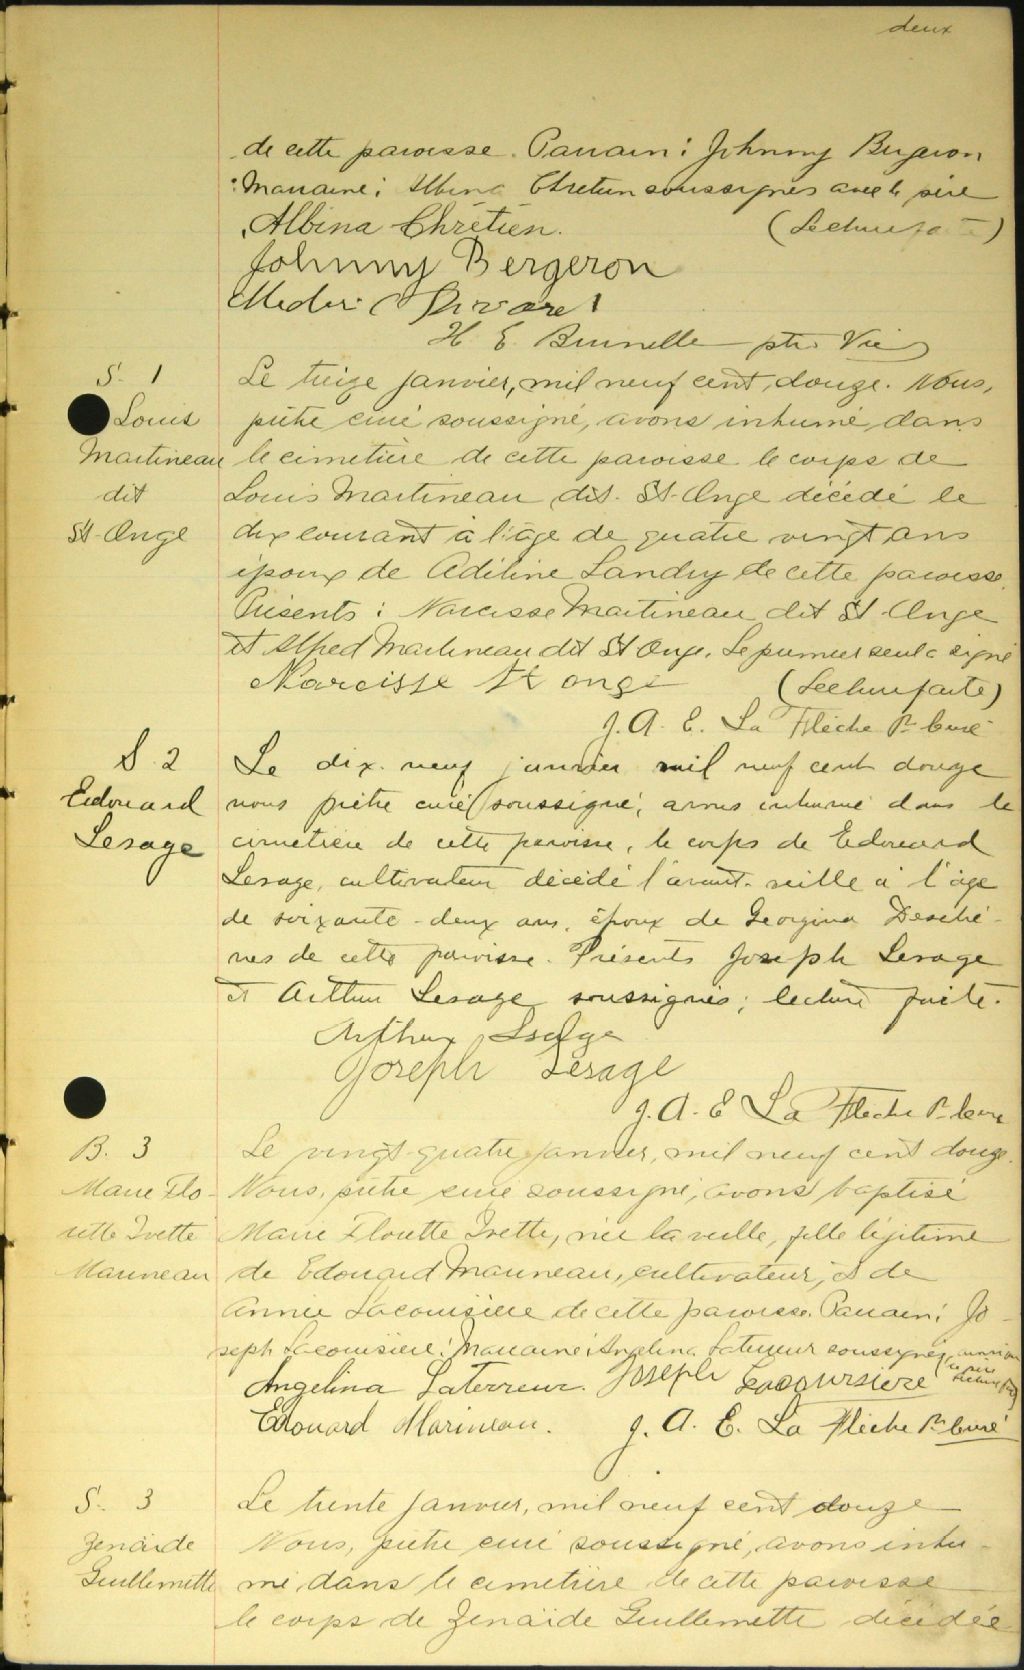 deux
de cette paroisse. Parrain: Johnny Bergeron
Marraine: Albina Chretien soussignés avec le père
Albina Chrétien. (Lecture faite)
Johnny Bergeron
H. E. Brunelle ptre Vic
S. 1 Le treize janvier, mil neuf cent, douze. Nous,
Louis prêtre curé soussigné, avons inhumé dans
Martineau le cimetière de cette paroisse le corps de
dit Louis Martineau dit St-Onge décédé le
St-Onge dix courant à l'âge de quatre vingt ans
époux de Adéline Landry de cette paroisse.
Présents: Narcisse Martineau dit St Onge
et Alfred Martineau dit St Onge. Le premier seul a signé
Narcisse St onge (Lecture faite)
J. A. E. La Flèche Ptre Curé
S. 2 Le dix-neuf janvier mil neuf cent douze
Edouard nous prêtre curé soussigné, avons inhumé dans le
Lesage cimetière de cette paroisse, le corps de Edouard
Lesage, cultivateur décédé l'avant-veille à l'âge
de soixante-deux ans, époux de Georgina Desché-
nes de cette paroisse. Présents Joseph Lesage
et Arthur Lesage soussignés; lecture faite.
Arthur Lesage
Joseph Lesage
J. A. E La Flèche Ptre Curé
B. 3 Le vingt-quatre janvier, mil neuf cent douze.
Marie Flo- Nous, prêtre curé soussigné, avons baptisé
rette Ivette Marie Florette Ivette, née la veille, fille légitime
Marineau de Edouard Marineau, cultivateur, et de
Annie Lacoursière de cette paroisse. Parrain: Jo-
seph Lacoursière: Marraine: Angelina Laterreur soussignés
Angelina Laterreur. Joseph Lacoursiere
Edouard Marineau. J. A. E. La Flèche Ptre Curé
S. 3 Le trente janvier, mil neuf cent douze
Zénaïde Nous, prêtre curé soussigné, avons inhu-
Guillemette mé dans le cimetière de cette paroisse
le corps de Zénaïde Guillemette décédée